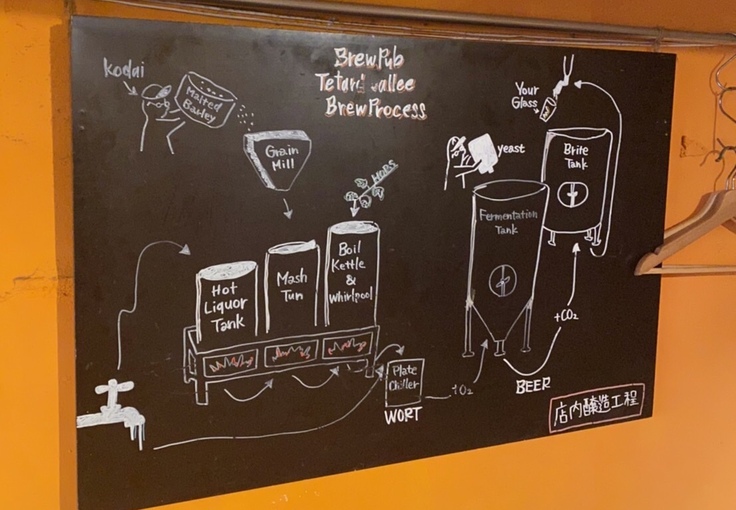 BrewPub
Tetard vallee
BrewProcess
kodai
Malted
Barley
Grain
Mill
HOPS
Hot
Liquor
Tank
Mash
Tun
Boil
Kettle
&
Whirlpool
Plate
Chiller
WORT
+O₂
yeast
Fermentation
Tank
BEER
+CO₂
Brite
Tank
Your
Glass
店内醸造工程